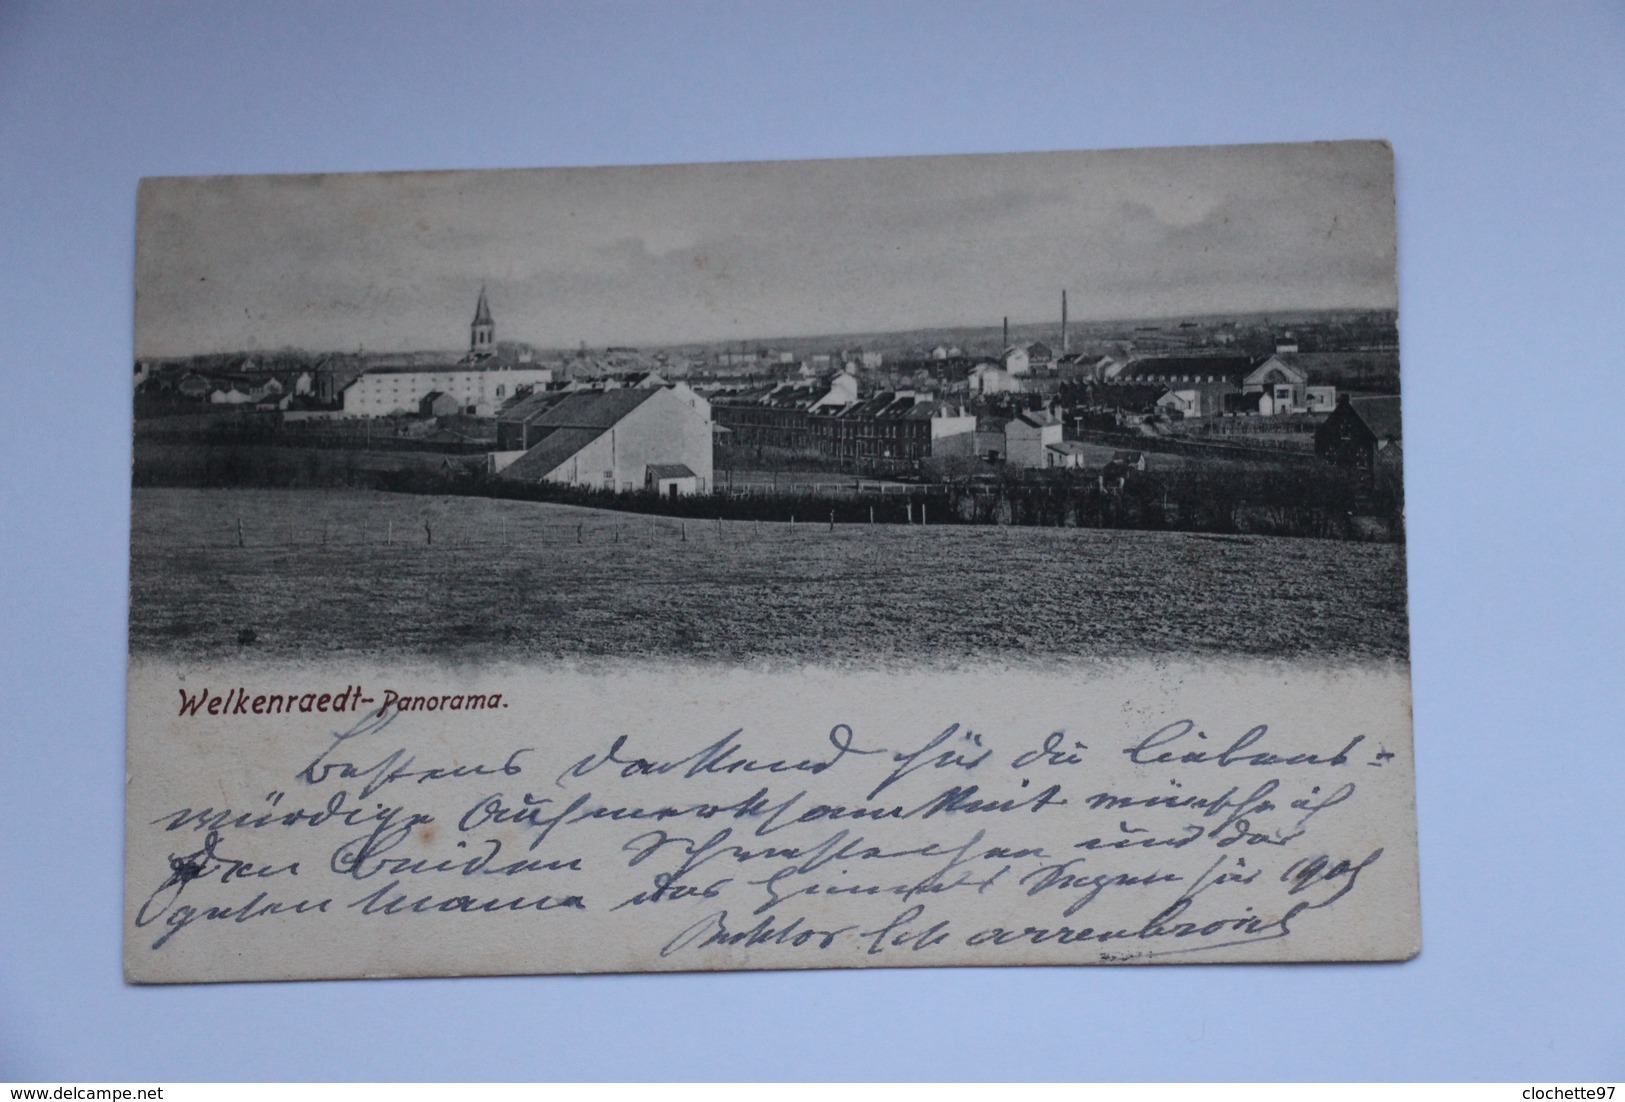 Welkenraedt - Panorama.
Bestens dankend für die liebens-
würdige Aufmerksamkeit wünsche ich
den beiden Schwesterchen und der
guten Mama des Himmels Segen für 1905
Rektor Scharrenbroich
delcampe.net
clochette97